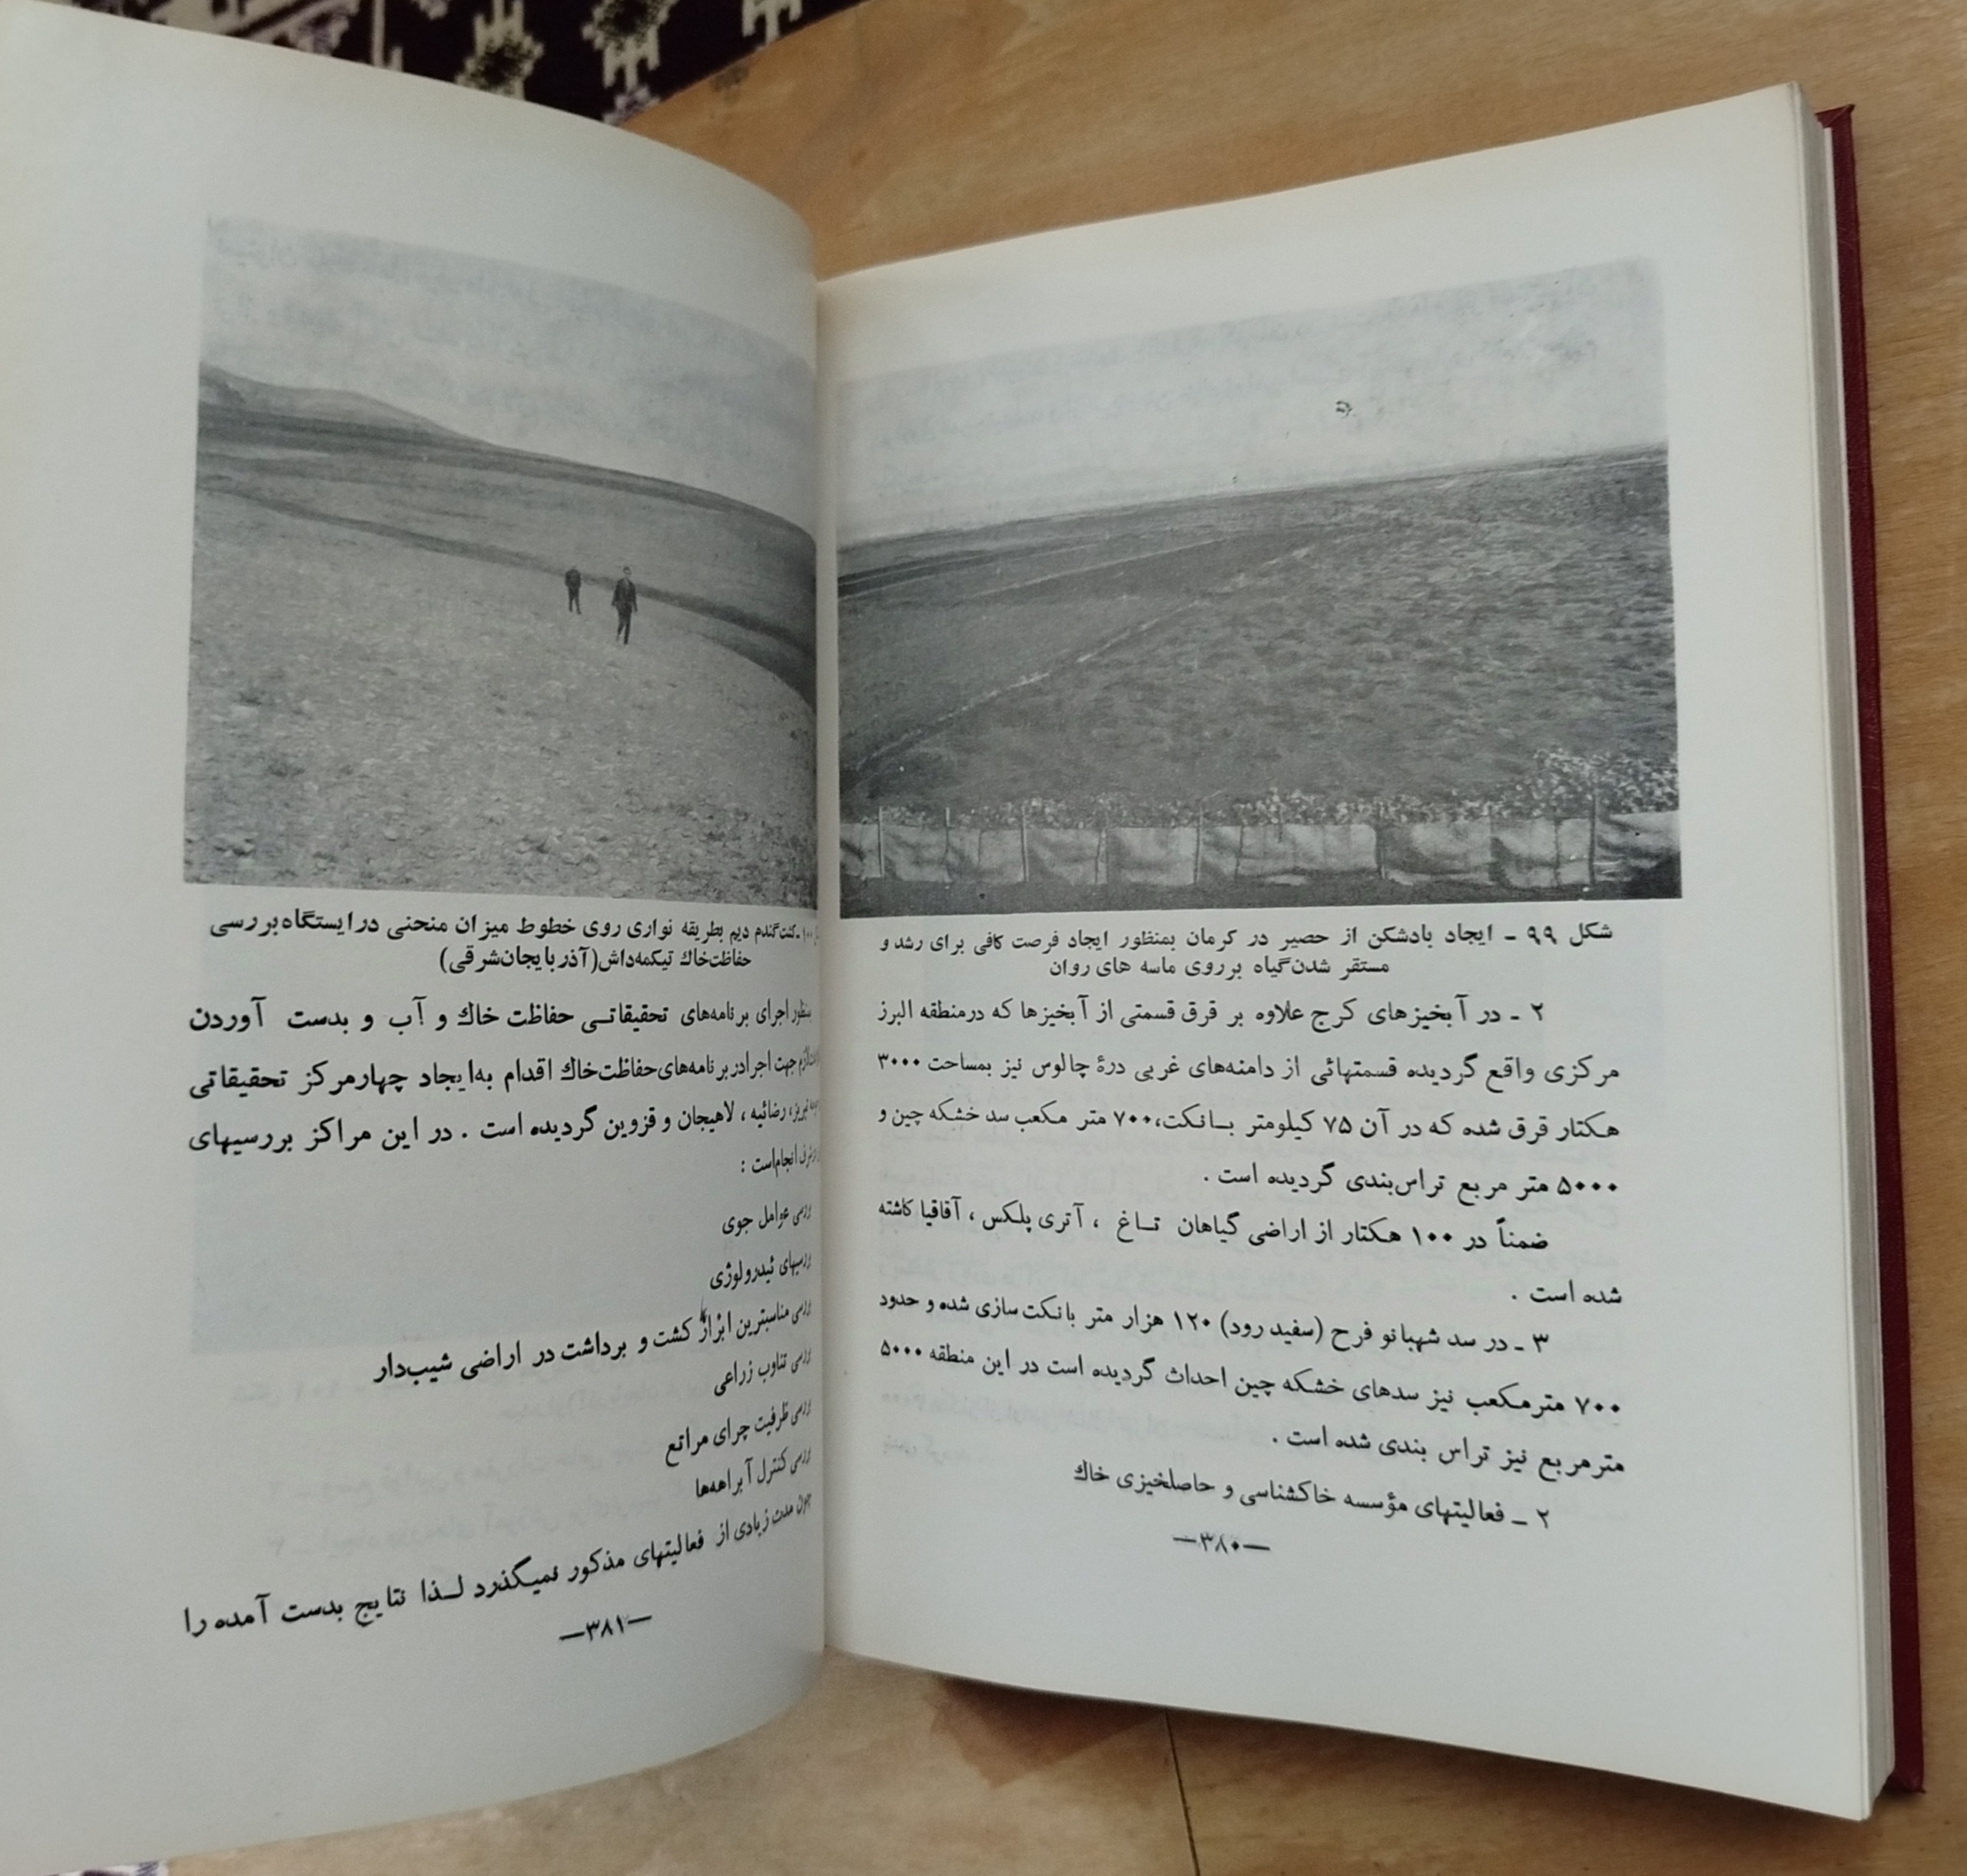 شکل ۹۹ ـ ایجاد بادشکن از حصیر در کرمان بمنظور ایجاد فرصت کافی برای رشد و
مستقر شدن‌گیاه برروی ماسه های روان
۲ ـ در آبخیزهای کرج علاوه بر قرق قسمتی از آبخیزها که درمنطقه البرز
مرکزی واقع گردیده قسمتهائی از دامنه‌های غربی درهٔ چالوس نیز بمساحت ۳۰۰۰
هکتار قرق شده که در آن ۷۵ کیلومتر بـانکت،۷۰۰ متر مکعب سد خشکه چین و
۵۰۰۰ متر مربع تراس‌بندی گردیده است .
ضمناً در ۱۰۰ هکتار از اراضی گیاهان تـاغ ، آتری پلکس ، آقاقیا کاشته
شده است .
۳ ـ در سد شهبانو فرح (سفید رود) ۱۲۰ هزار متر بانکت سازی شده و حدود
۷۰۰ مترمکعب نیز سدهای خشکه چین احداث گردیده است در این منطقه ۵۰۰۰
مترمربع نیز تراس بندی شده است .
۲ ـ فعالیتهای مؤسسه خاکشناسی و حاصلخیزی خاك
—۳۸۰—
۱۰۰ ـ کشت‌گندم دیم بطریقه نواری روی خطوط میزان منحنی درایستگاه‌بررسی
حفاظت‌خاك تیکمه‌داش(آذربایجان‌شرقی)
بمنظور اجرای برنامه‌های تحقیقاتـی حفاظت خاك و آب و بدست آوردن
لازم جهت اجرادربرنامه‌های‌حفاظت‌خاك اقدام به‌ایجاد چهارمرکز تحقیقاتی
تبریز، رضائیه ، لاهیجان و قزوین گردیده است . در این مراکز بررسیهای
انجام‌است :
بررسی عوامل جوی
بررسیهای ئیدرولوژی
بررسی مناسبترین ابزار کشت و برداشت در اراضی شیب‌دار
بررسی تناوب زراعی
بررسی ظرفیت چرای مراتع
بررسی کنترل آبراهه‌ها
چون مدت زیادی از فعالیتهای مذکور نمیگذرد لـذا نتایج بدست آمده را
—۳۸۱—